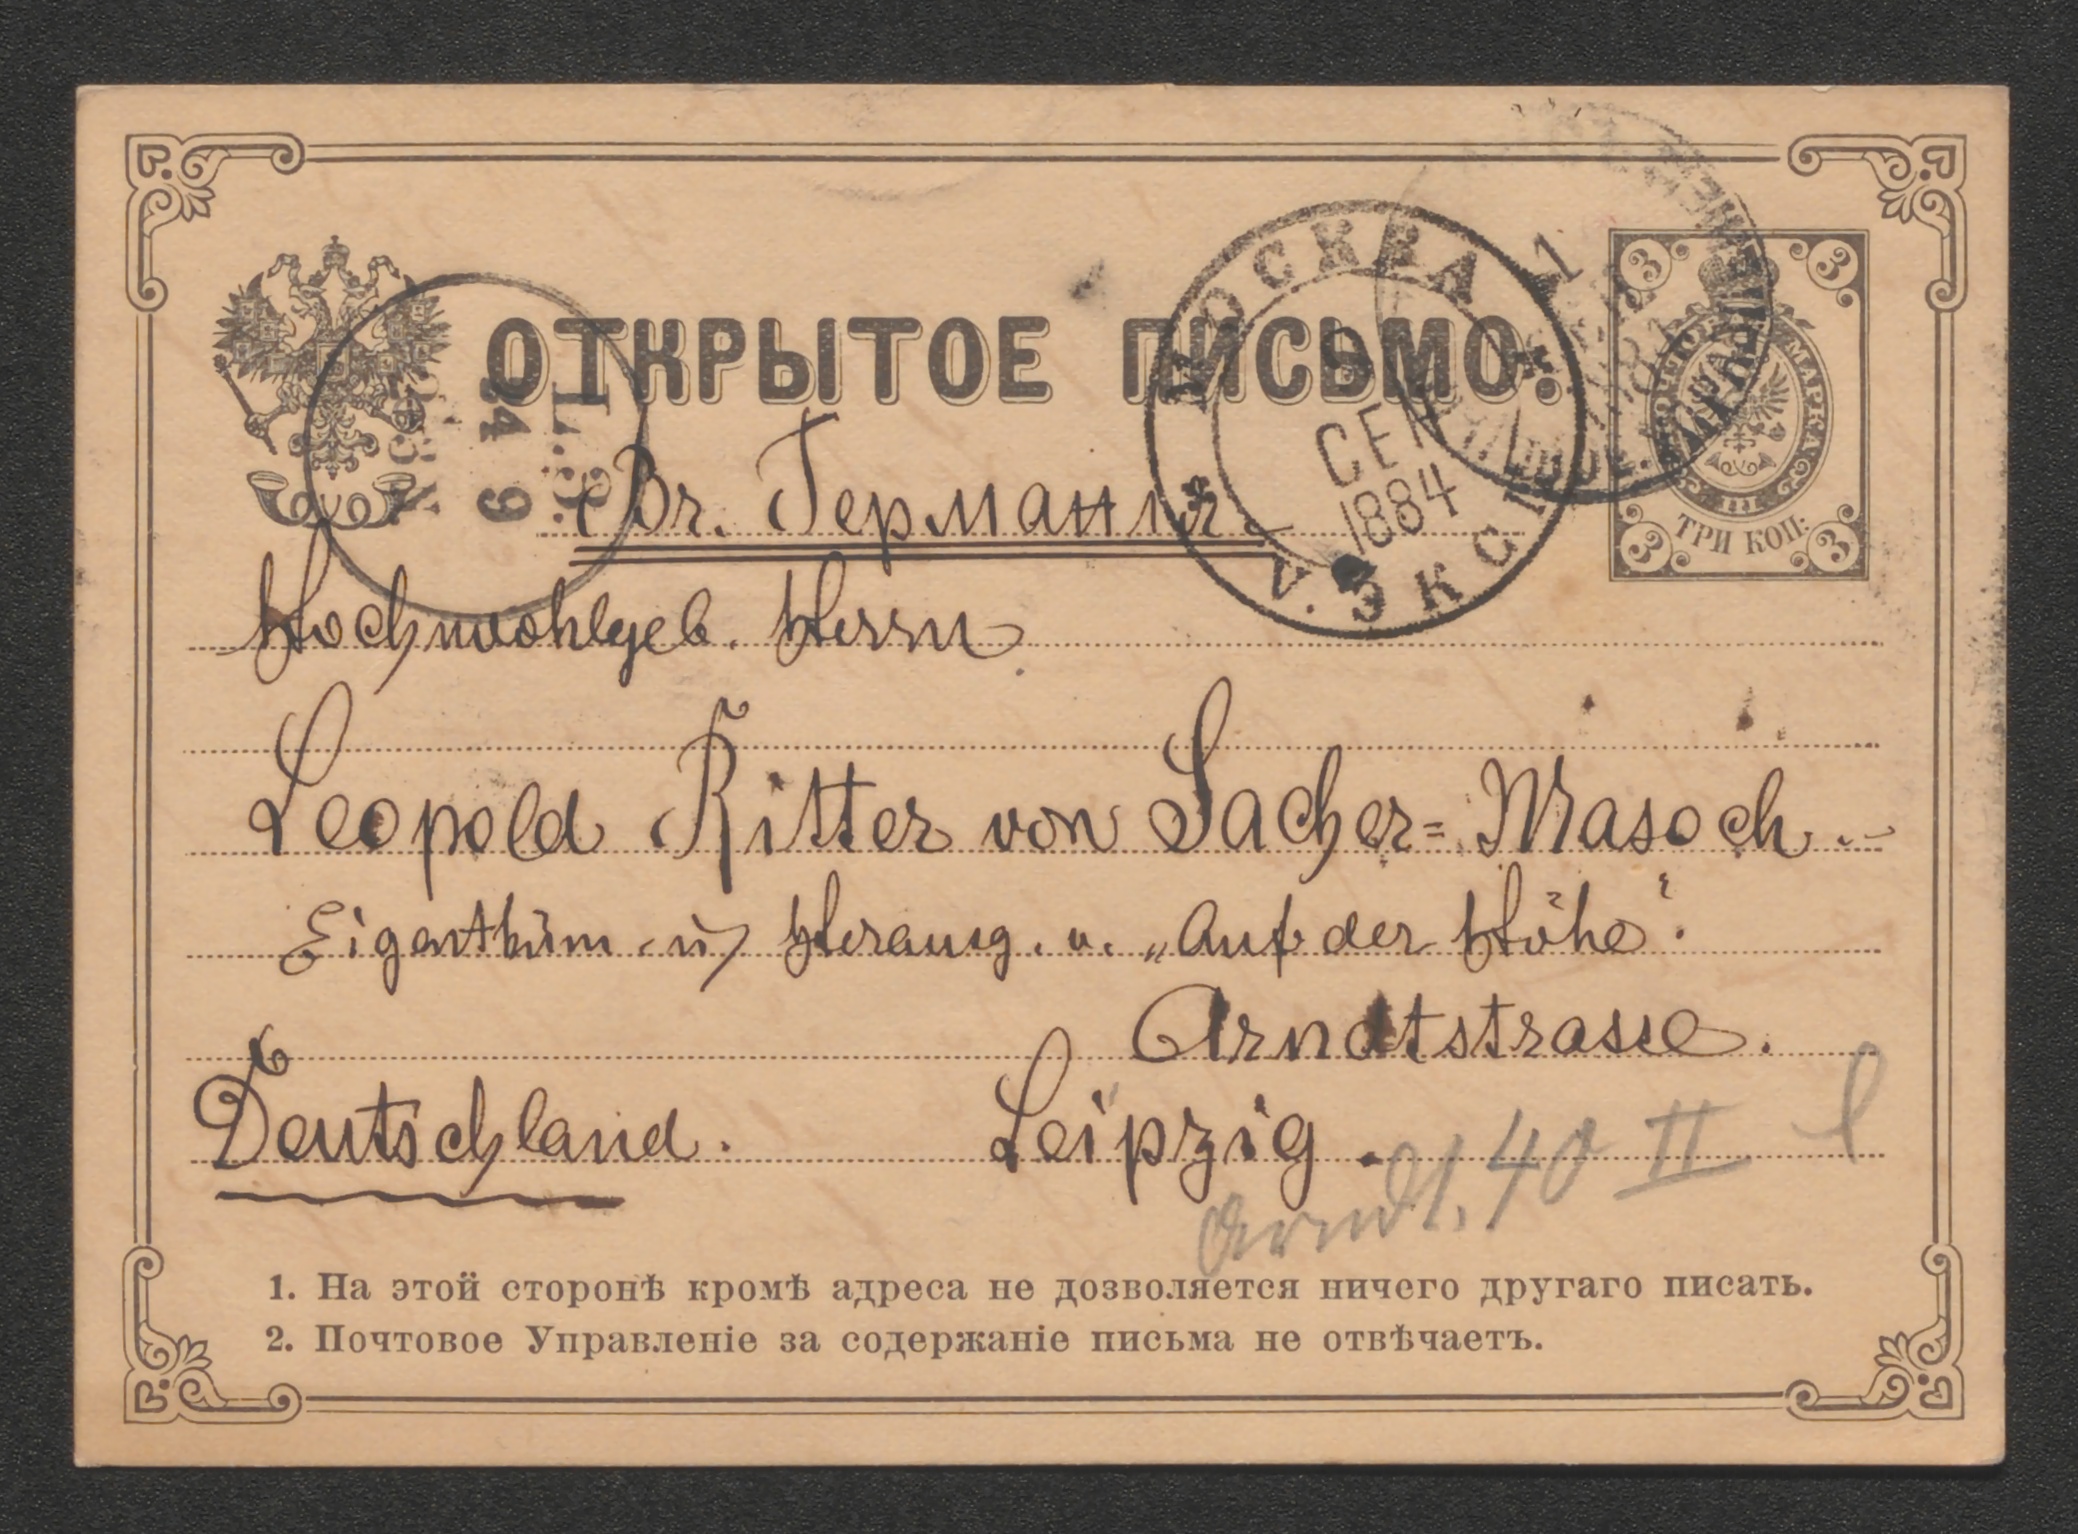 ОТКРЫТОЕ ПИСЬМО.
МОСКВА
СЕН
1884
V. ЭКСП
3 3
МАРКА
III
ТРИ КОП:
3 3
Вг. Германія
Hochwohlgeb. Herrn
Leopold Ritter von Sacher=Masoch.
Eigenthüm. u. Herausg. v. „Auf der Höhe".
Arndtstrasse.
Deutschland. Leipzig.
Arndt. 40 II
1. На этой сторонѣ кромѣ адреса не дозволяется ничего другаго писать.
2. Почтовое Управленіе за содержаніе письма не отвѣчаетъ.